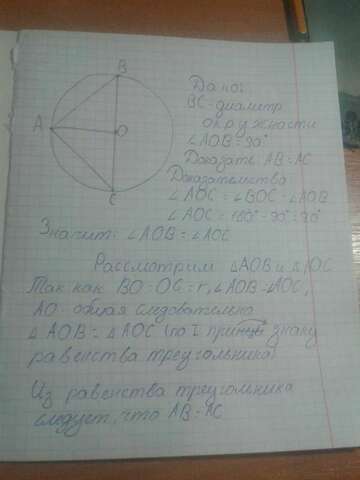 B
A
O
C
Дано:
BC-диаметр
окружности
∠AOB=90°
Доказать: AB=AC
Доказательства
∠AOC = ∠BOC - ∠AOB
∠AOC = 180° - 90° = 90°
Значит: ∠AOB = ∠AOC
Рассмотрим △AOB и △AOC
Так как BO=OC=r, ∠AOB=∠AOC,
AO общая следовательно
△AOB = △AOC (по I признаку
равенства треугольника)
Из равенства треугольника
следует, что AB=AC